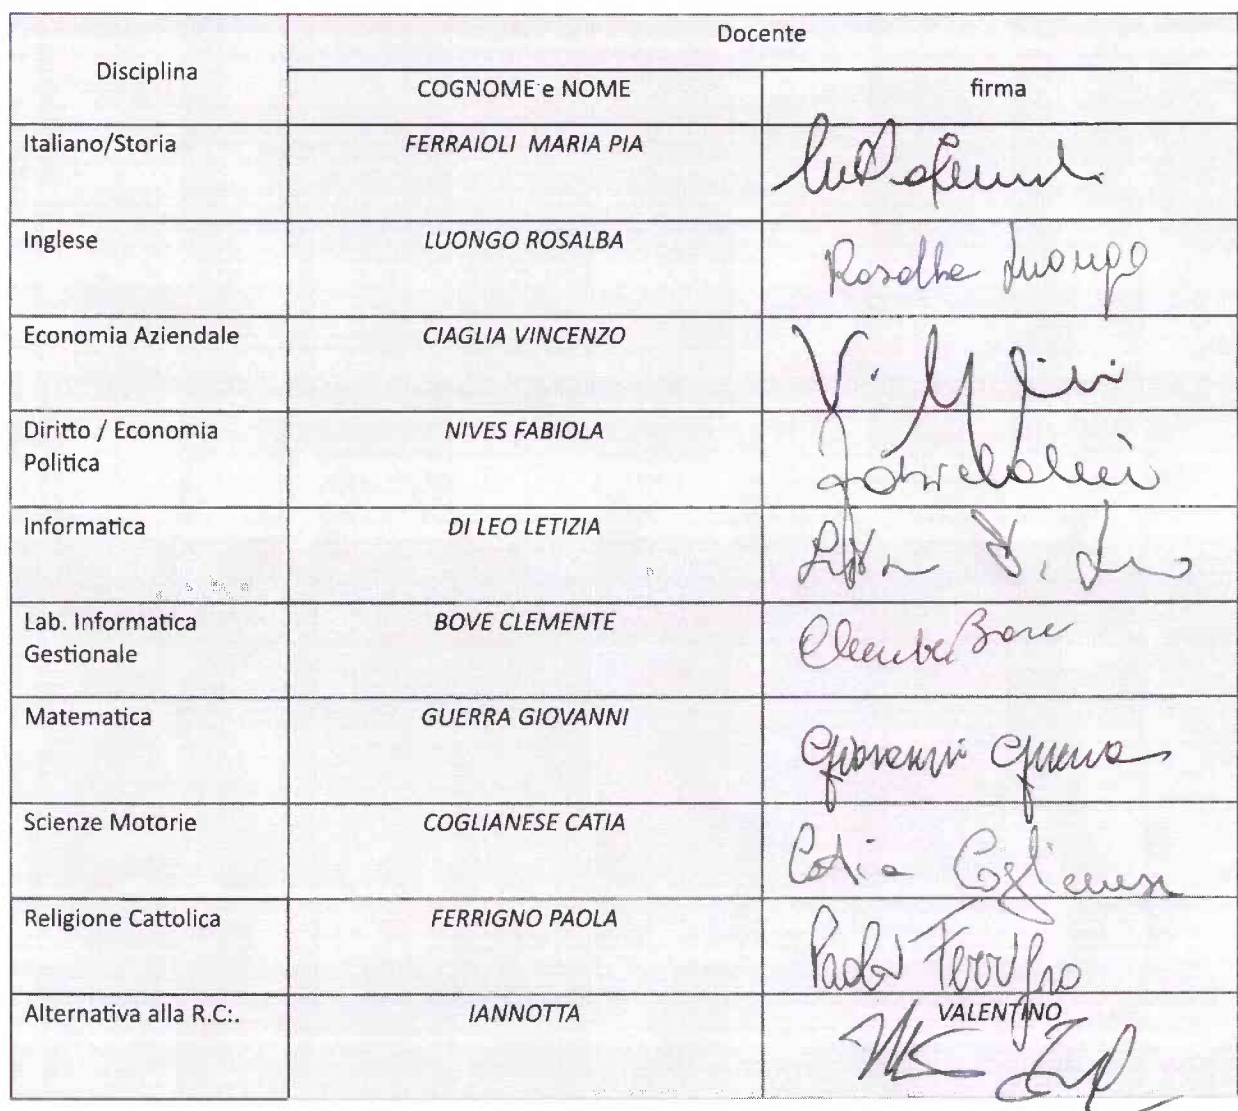 Docente
Disciplina
COGNOME e NOME firma
Italiano/Storia FERRAIOLI MARIA PIA
Inglese LUONGO ROSALBA Rosalba Luongo
Economia Aziendale CIAGLIA VINCENZO V.
Diritto / Economia NIVES FABIOLA
Politica
Informatica DI LEO LETIZIA
Lab. Informatica BOVE CLEMENTE Clemente Bove
Gestionale
Matematica GUERRA GIOVANNI Giovanni Guerra
Scienze Motorie COGLIANESE CATIA Catia Coglianese
Religione Cattolica FERRIGNO PAOLA Paola Ferrigno
Alternativa alla R.C:. IANNOTTA VALENTINO